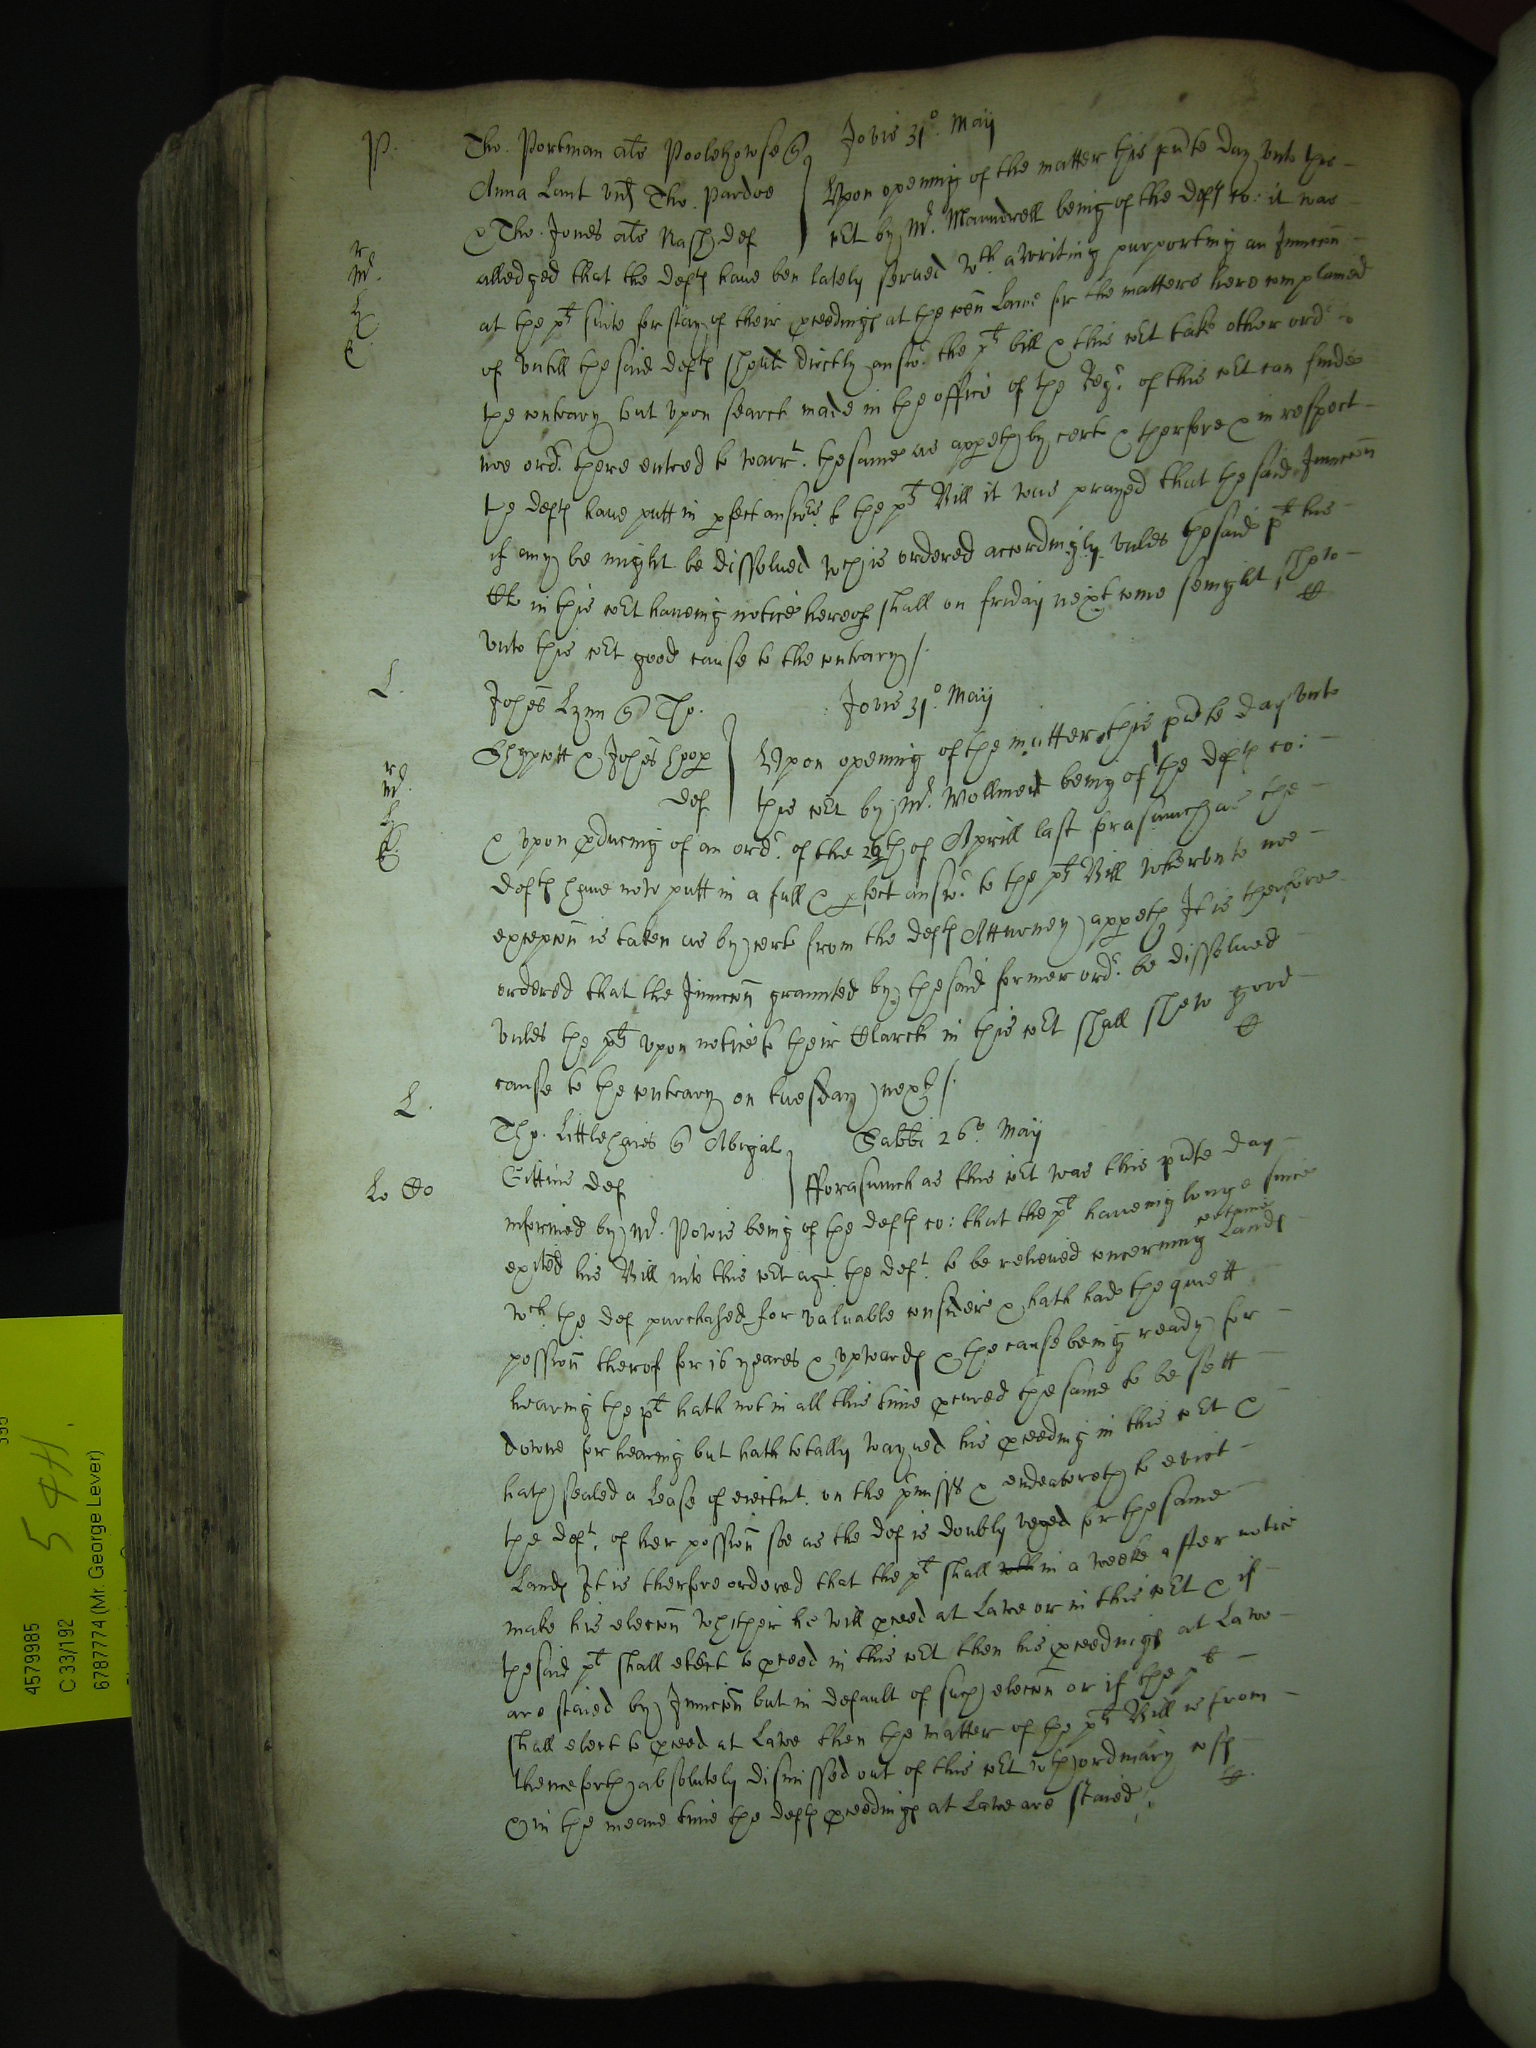 P. Tho. Portman als Poolehowse q
Jovis 31o. Maij
Anna Lant vid Tho. Pardoe
& Tho. Jones als Nash def
Upon opening of the matter this pnte day unto this
Cot by Mr. Maundrell being of the defts co: it was
alledged that the defts have ben lately served wth. a writing purporting an Iniuncon
at the plts suite for stay of their pceedings at the comon Lawe for the matters here complained
of untill the said defts should directly answr. the plts bill & this Cot take other ordr. to
the contrary but upon search made in the office of the Regr. of this Cot can finde
noe ordr. there entred to warrt. the same as appeth by cert & therfore & in respect
the defts have putt in pfect answers. to the plts Bill it was prayed that the said Iniuncon
if any be might be dissolved wch is ordered accordingly unles the said plt his
Clk in this Cot haveing notice hereof shall on friday next come senight shew
unto this Cot good cause to the contrary /.
L. Johes Lynn q Tho.
Jovis 31o. Maij
& Johes
def
Upon opening of the matter this pnte day unto
this Cot by Mr. being of the defts co:
& upon pducing of an ordr. of the 29th of Aprill last forasmuch as the
defts have now putt in a full & pfect answr. to the plts Bill wherunto noe
excepcon is taken as by cert from the defts Atturney appeth It is therfore
ordered that the Iniuncon graunted by the said former ordr. be dissolved
unles the plts upon notice to their Clarck in this Cot shall shew good
cause to the contrary on tuesday next /.
L. Tho. Littlehaies q Abigal
Sabbi 26o. Maij
Gittins def
fforasmuch as this Cot was this pnte day
informed by Mr. Powis being of the defts co: that the plt haveing longe since
exited his Bill into this Cot agt. the deft. to be releived concerning certaine Lands
wch. the def purchased for valuable consideracon & hath had the quiett
possion therof for 16 yeares & upwards & the cause being ready for
hearing the plt hath not in all this time pcured the same to be sett
downe for hearing but hath totally wayved his pceeding in this Cot &
hath sealed a Lease of eiectmt. on the pmisses & endeavoreth to evict
the deft. of her possion soe as the def is doubly vexed for the same
Lands It is therfore ordered that the plt shall in a weeke after notice
make his eleccon whither he will pceed at Lawe or in this Cot & if
the said plt shall elect to pceed in this Cot then his pceedings at Lawe
are staied by Iniuncon but in default of such eleccon or if the plt
shall elect to pceed at Lawe then the matter of the plts Bill is from
thenceforth absolutely dismissed out of this Cot wth ordinary costs
& in the meane time the defts pceedings at Lawe are staied /.
544.
4579985
C 33/192
6787774 (Mr. George Lever)